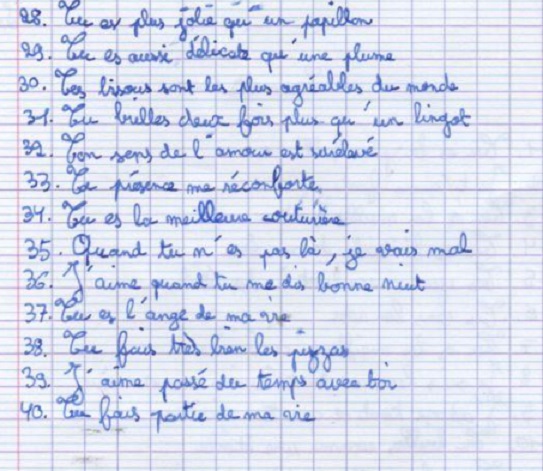 28. Tu es plus jolie qu'un papillon
29. Tu es aussi délicate qu'une plume
30. Tes bisous sont les plus agréables du monde
31. Tu brilles deux fois plus qu'un lingot
32. Ton sens de l'amour est surélevé
33. Ta présence me réconforte
34. Tu es la meilleure couturière
35. Quand tu n'es pas là, je vais mal
36. J'aime quand tu me dis bonne nuit
37. Tu es l'ange de ma vie
38. Tu fais très bien les pizzas
39. J'aime passé du temps avec toi
40. Tu fais partie de ma vie